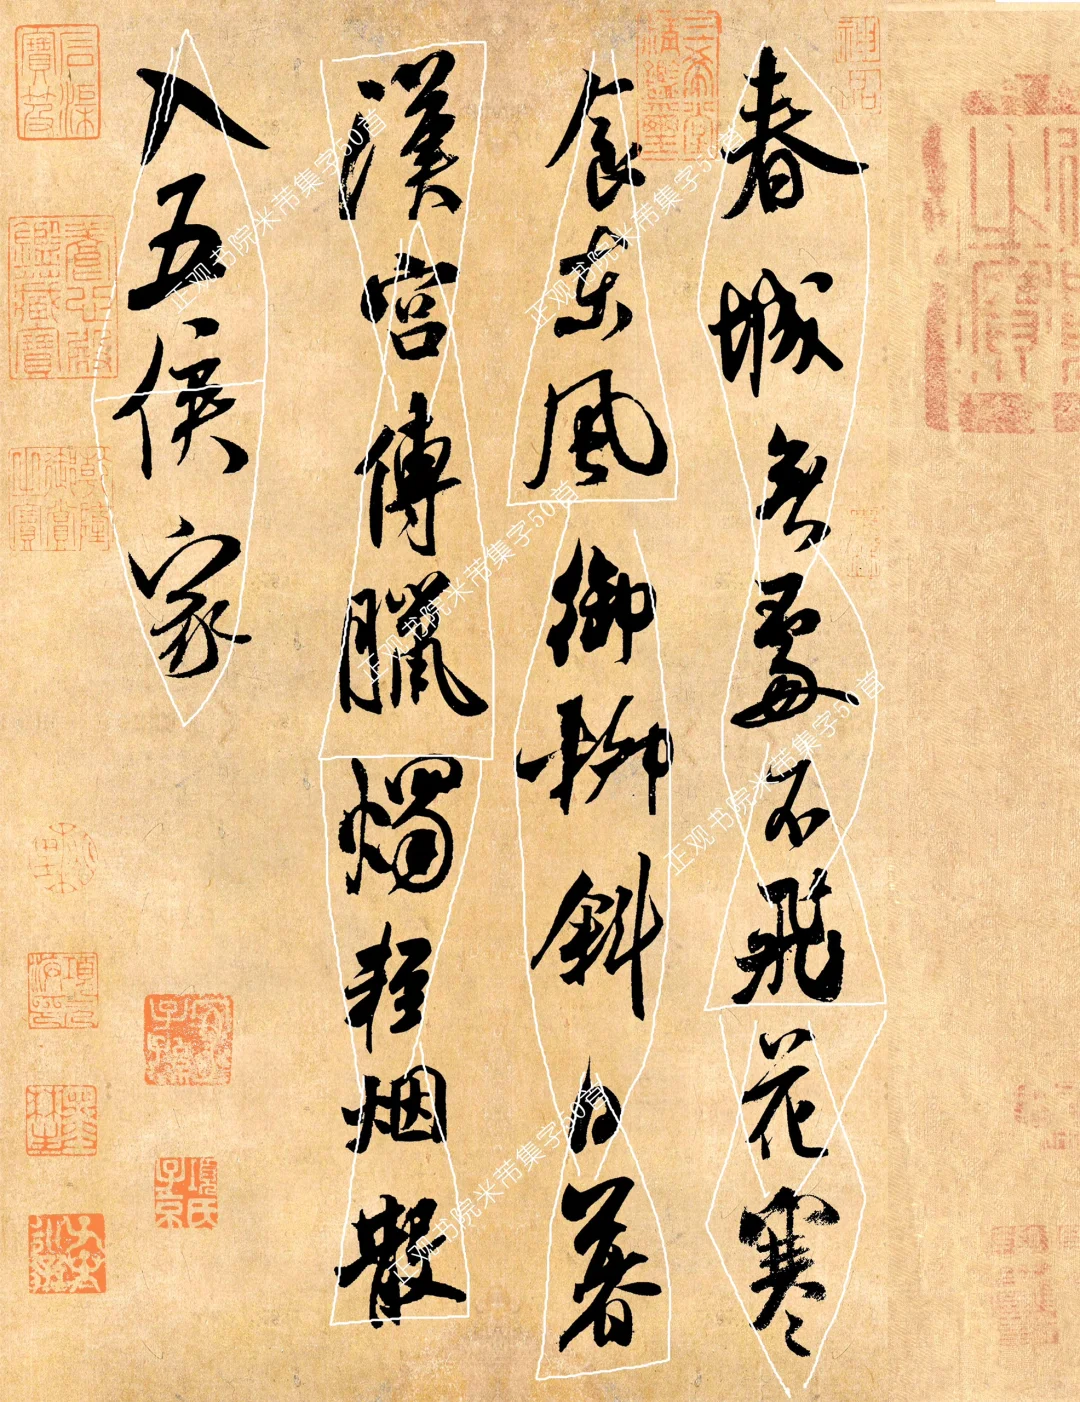 春城無處不飛花寒
食東風御柳斜日暮
漢宮傳臘燭輕烟散
入五侯家
正观书院米芾集字50首
正观书院米芾集字50首
正观书院米芾集字50首
正观书院米芾集字50首
正观书院米芾集字50首